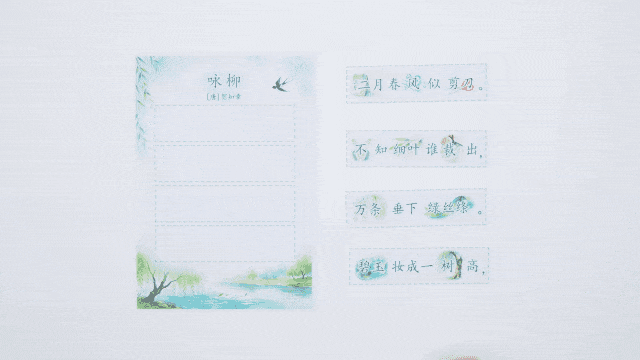 咏柳
[唐]贺知章
二月春风似剪刀。
不知细叶谁裁出,
万条垂下绿丝绦。
碧玉妆成一树高,